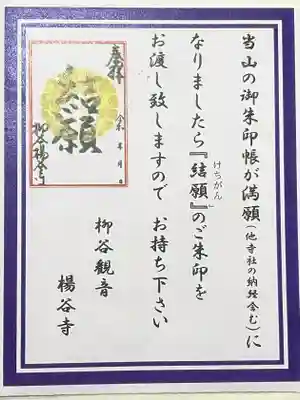 当山の御朱印帳が満願(他寺社の納経含む)に
なりましたら『結願』のご朱印を
けちがん
お渡し致しますので お持ち下さい
柳谷観音
楊谷寺
奉拝
結願
令和 年 月 日